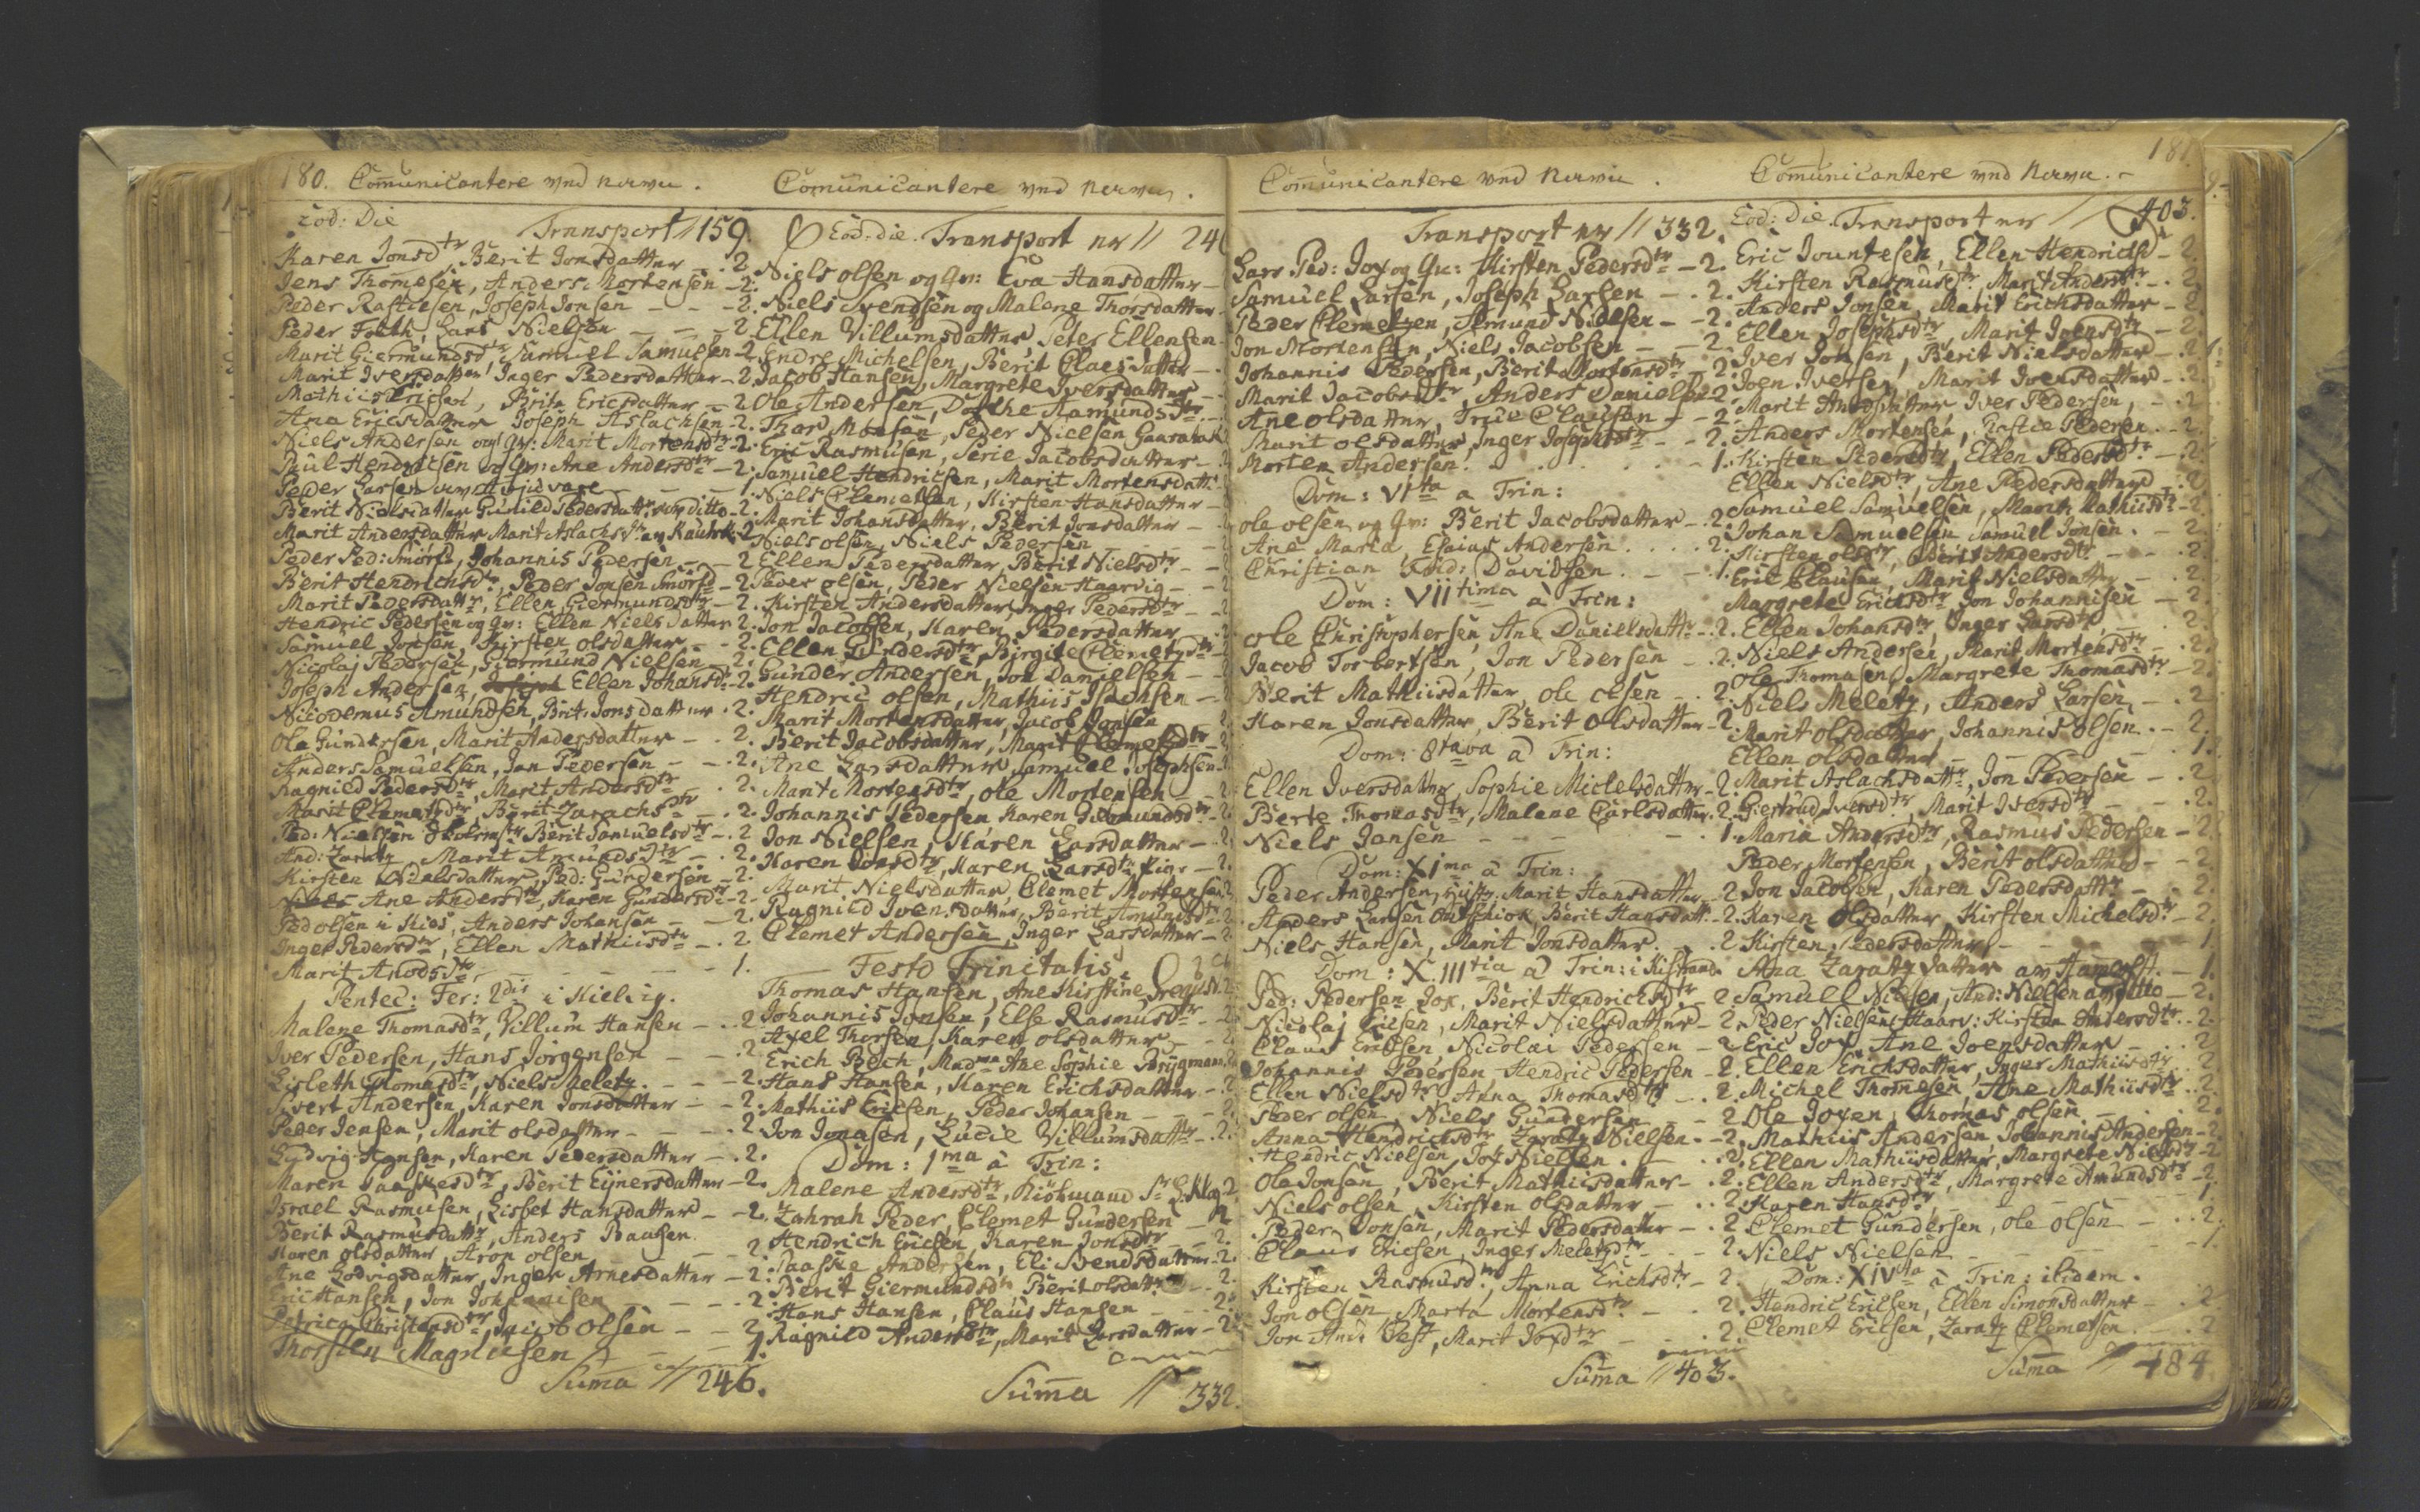 180. Com̅unicantere
Eod: Die Transport // 159.
Karen Jonsd:tr Berit Jonsdatter - 2.
Jens Thomesen, Anders Mortensen - 2.
Peder Joseph Jonsen - - - 2.
Peder Lars Nielsen - - - 2
Marit Giermundsd:tr Samuel Samuelsen - 2.
Marit Iversdatter Inger Pedersdatter - 2.
Brita Ericsdatter - 2
Ana Ericsdatter Joseph Aslachsen - 2.
Niels Andersen og Qv: Marit Mortensd:tr - 2.
Poul Hendricsen og Qv: Ane Andersd:tr - 2.
Peder Larsen - 1.
Berit Nielsdatter Gunild Pedersdatt: ditto - 2.
Marit Andersdatter Marit Aslachsd:tr 2
Peder Ped: Johannis Pedersen - - 2
Berit Hendrichsd:tr, Peder Jonsen - 2.
Marit Pedersdatt:r, Ellen Giermundsd:tr - 2.
Hendric Pedersen og Qv: Ellen Niels datter 2.
Samuel Jonsen, Kirsten olsdatter - - 2.
Nicolaj Pedersen, Giermund Nielsen - 2.
Joseph Andersen, Ellen Johansd:r - 2.
Nicodemus Amundsen, Brit: Jonsdatter . 2.
Ole Gundersen, Marit Andersdatter - . 2.
Anders Samuelsen, Jon Pedersen - - . 2.
Ragnild Pedersd:tr, Marit Andersd:tr . 2.
Marit Clemetsd:tr, Berit Zarachsd:tr - . 2.
Ped: Nielsen Berit Samuelsd:tr - . 2
And: Zaraty Marit Amundsd:tr - . 2.
Kirsten Nielsdatter, Ped: Gundersen - 2.
Ane Andersd:tr, Karen Gundersd:tr - 2
Ped olsen i Anders Johansen - - 2.
Inger Pedersd:tr, Ellen Mathiisd:tr - . 2.
Marit - - - 1.
Pentec: Fer: 2dis i Kielvig.
Malene Thomasd:tr, Villum Hansen - . 2
Iver Pedersen, Hans Jörgensen - . 2.
Lisbeth Thomasd:tr, Niels Meletz. - - 2
Sivert Andersen, Karen Jonsdatter - - 2
Peder Jensen, Marit olsdatter - - - 2
Ludvig Hansen, Karen Pedersdatter - . 2.
Maren Berit Eijnersdatter - 2.
Israel Rasmusen, Lisbet Hansdatter - - 2.
Berit Rasmusdatt:r, Anders
Karen olsdatter, Aron olsen - - 2
Ane Lodvigsdatter, Inger Arnesdatter - 2
Eric Hansen, Jon Johannisen - - - 2
Christensd:tr, Jacob olsen - - 2
Thorsten Magnusen - - 1.
Sum̅a // 246.
Com̅unicantere
Eod: die. Transport // 246
Niels olsen og Qv: Eva Hansdatter -
Niels Svendsen og Malene Thorsdatter
Ellen Villumsdatter Peter Ellensen
Endre Michelsen, Berit Claesdatter - .
Jacob Hansen, Margrete Iversdatter -
Ole Andersen, Amundsd:tr -
Thor Monsen, Peder Nielsen
Eric Rasmusen, Serie Jacobsdatter -
Samuel Hendricsen, Marit Mortensdatt:
Niels Clemetsen, Kirsten Hansdatter -
Marit Johansdatter, Berit Jonsdatter -
Niels olsen, Niels Pedersen
Ellen Pedersdatter, Berit Nielsd:tr -
Peder olsen, Peder Nielsen Haarvig -
Kirsten Andersdatter, Inger Pedersd:tr -
Jon Jacobsen, Karen Pedersdatter
Ellen Gundersd:tr, Birgite Clemetsd:tr
Gunder Andersen, Jon Danielsen -
Hendric olsen, Mathiis -
Marit Mortensdatter, Jacob Jonsen
Berit Jacobsdatter, Marit Clemetsd:tr
Ane Larsdatter, Samuel Josephsen
Marit Mortensd:tr, ole Mortensen
Johannis Pedersen Karen Giermundsd:tr
Jon Nielsen, Karen Larsdatter - 2
Karen Jonsd:tr, Karen Larsd:tr - 2.
Marit Nielsdatter, Clemet Mortensen 2
Ragnild Ivensdatter, Berit Amundsd:tr 2
Clemet Andersen, Inger Larsdatter - 2
Festo Trinitatis
Thomas Hansen, Ane Kirstine
Johannis Jonsen, Else Rasmusd:tr - 2
Axel Thorsen, Karen olsdatter - 2
Erich Bech, Mad:me Ane Sophie Brygmann 2
Hans Hansen, Karen Erichsdatter - 2
Mathiis Ericsen, Peder Johansen - - 2
Jon Jonasen, Lucie Villumsdatt:r - 2.
Dom: 1ma à Trin:
Malene Andersd:tr, 2.
Zahrah Peder, Clemet Gundersen - 2.
Hendrich Ericsen, Karen Jonsd:tr - 2.
Paaske Andersen, Eli Svendsdatter - 2.
Berit Giermundsd:tr, Berit olsdatt: - 2.
Hans Hansen, Claus Hansen - 2.
Ragnild Andersd:tr, Marit Larsdatter - 2
Sum̅a // 332.
Com̅unicantere
Transport // 332.
Lars Ped: Jox og Qv: Kirsten Pedersd:tr - 2.
Samuel Larsen, Joseph Larsen - . 2.
Peder Clemetzen, Amund Nielsen - - 2.
Jon Mortensen, Niels Jacobsen - - 2
Johannis Pedersen, Berit Mortensd:tr - 2.
Marit Jacobsd:tr, Anders Danielsen 2
Ane olsdatter, True Clausen - - 2.
Marit olsdatter, Inger Josephsd:tr - - 2.
Morten Andersen. - 1.
Dom: VIta a Trin:
ole olsen og Qv: Berit Jacobsdatter - . 2.
Ane Maria, Esaias Andersen . . . . 2.
Christian Davidsen. - - 1.
Dom: VIItima à Trin:
ole Christophersen, Ane Danielsdatt:r - . 2.
Jacob Torbertsen, Jon Pedersen - . 2.
Berit Mathiisdatter, ole olsen - . 2.
Karen Jonsdatter, Berit olsdatter - 2
Dom: 8tava à Trin:
Ellen Iversdatter, Sophie Michelsdatter - 2
Berte Thomasd:tr, Malene Carlsdatter. 2.
Niels Jansen - - - - . 1.
Dom: XIma à Trin:
Peder Andersen, Marit Hansdatter - 2
Anders Larsen Berit Hansdatt: - 2.
Niels Hansen, Marit Jonsdatter. - . 2
Dom: XIIItia à Trin: i Kistrand.
Ped: Pedersen Jox, Berit Hendrichsd:tr - 2
Nicolaj Marit Nielsdatter - 2.
Claus Ericsen, Nicolai Pedersen - 2
Johannis Pedersen Hendric Pedersen - 2.
Ellen Nielsd:tr Anna Thomasd:tr - . . 2.
Peder olsen, Niels Gundersen - - 2
Anna Hendrichsd:tr, Zaraty Nielsen. - 2.
Hendric Nielsen, Jox Nielsen. - . 2.
Ole Jonsen, Berit Mathiisdatter - . 2.
Niels olsen, Kirsten olsdatter - . . 2
Peder Jonsen, Marit Pedersdatter - . 2
Claus Ericsen, Inger Meletzd:tr. - - 2.
Kirsten Rasmusd:tr, Anna Erichsd:tr - 2.
Jon olsen, Marta Mortensd:tr - . 2.
Jon Marit Joxd:tr - - . 2.
Sum̅a // 403.
Com̅unicantere 181.
Eod: Die. Transport // 403.
Eric Ellen Hendrichsd - 2.
Kirsten Rasmusd:tr, Marit Andersd:tr - . 2
Anders Jonsen, Marit Erichsdatter - 2.
Ellen Josephsd:tr, Marit Ivensd:tr - 2.
Iver Jonsen, Berit Nielsdatter - . 2.
Joen Iversen, Marit Ivensdatter - . 2.
Marit Iver Pedersen, - . 2
Anders Mortensen, Pedersen. - 2.
Kirsten Pedersd:tr, Ellen Pedersd:tr. - 2.
Ellen Nielsd:tr, Ane Pedersdatter - 2
Samuel Samuelsen, Marit Mathiisd:tr - 2
Johan Samuelsen Samuel Jonsen. - 2.
Kirsten olsd:tr, Berit Andersd:tr - - 2.
Eric Clausen, Marit Nielsdatter - . 2.
Margrete Ericsd:tr Jon Johannisen - 2.
Ellen Johansd:tr, Inger Larsd:tr . 2.
Niels Andersen, Marit Mortensd:tr - . 2.
Ole Thomasen, Margrete Thomasd:tr - 2.
Niels Meletz, Anders Larsen, - . 2
Marit olsdatter, Johannis olsen. - 2.
Ellen olsdatter - - - - 1.
Marit Aslachsdatt:r, Jon Pedersen - . 2
Giertrud Iversd:tr, Marit Iversd:tr - - 2.
Maria Andersd:tr, Rasmus Pedersen - 2.
Peder Mortensen, Berit olsdatter - - 2
Jon Jacobsen, Karen Pedersdatt:r - . 2.
Karen olsdatter, Kirsten Michelsd:tr - 2.
Kirsten Pedersdatter, - - - 1.
Ana Zaraty datter - 1.
Samuell Nielsen, And: Nielsen ditto - 2.
Peder Nielsen Haarv: Kirsten Andersd:tr. . 2.
Eric Jox, Ane Ivensdatter - . . 2
Ellen Erichsdatter, Inger Mathiisd:tr 2
Michel Thomesen, Ane Mathiisd:tr . 2.
Ole Joxen, Thomas olsen - . 2.
Mathiis Andersen, Johannis Andersen - 2
Ellen Mathiisdatter, Margrete Nielsd:tr - 2
Ellen Andersd:tr, Margrete Amundsd:tr - 2.
Karen Hansd:tr - - - 1.
Clemet Gundersen, ole olsen - . . 2.
Niels Nielsen - - - - 1
Dom: XIVta à Trin: ibidem.
Hendric Ericsen, Ellen Simonsdatter - . 2
Clemet Ericsen, Zaraty Clemetsen. - . 2
Sum̅a // 484.